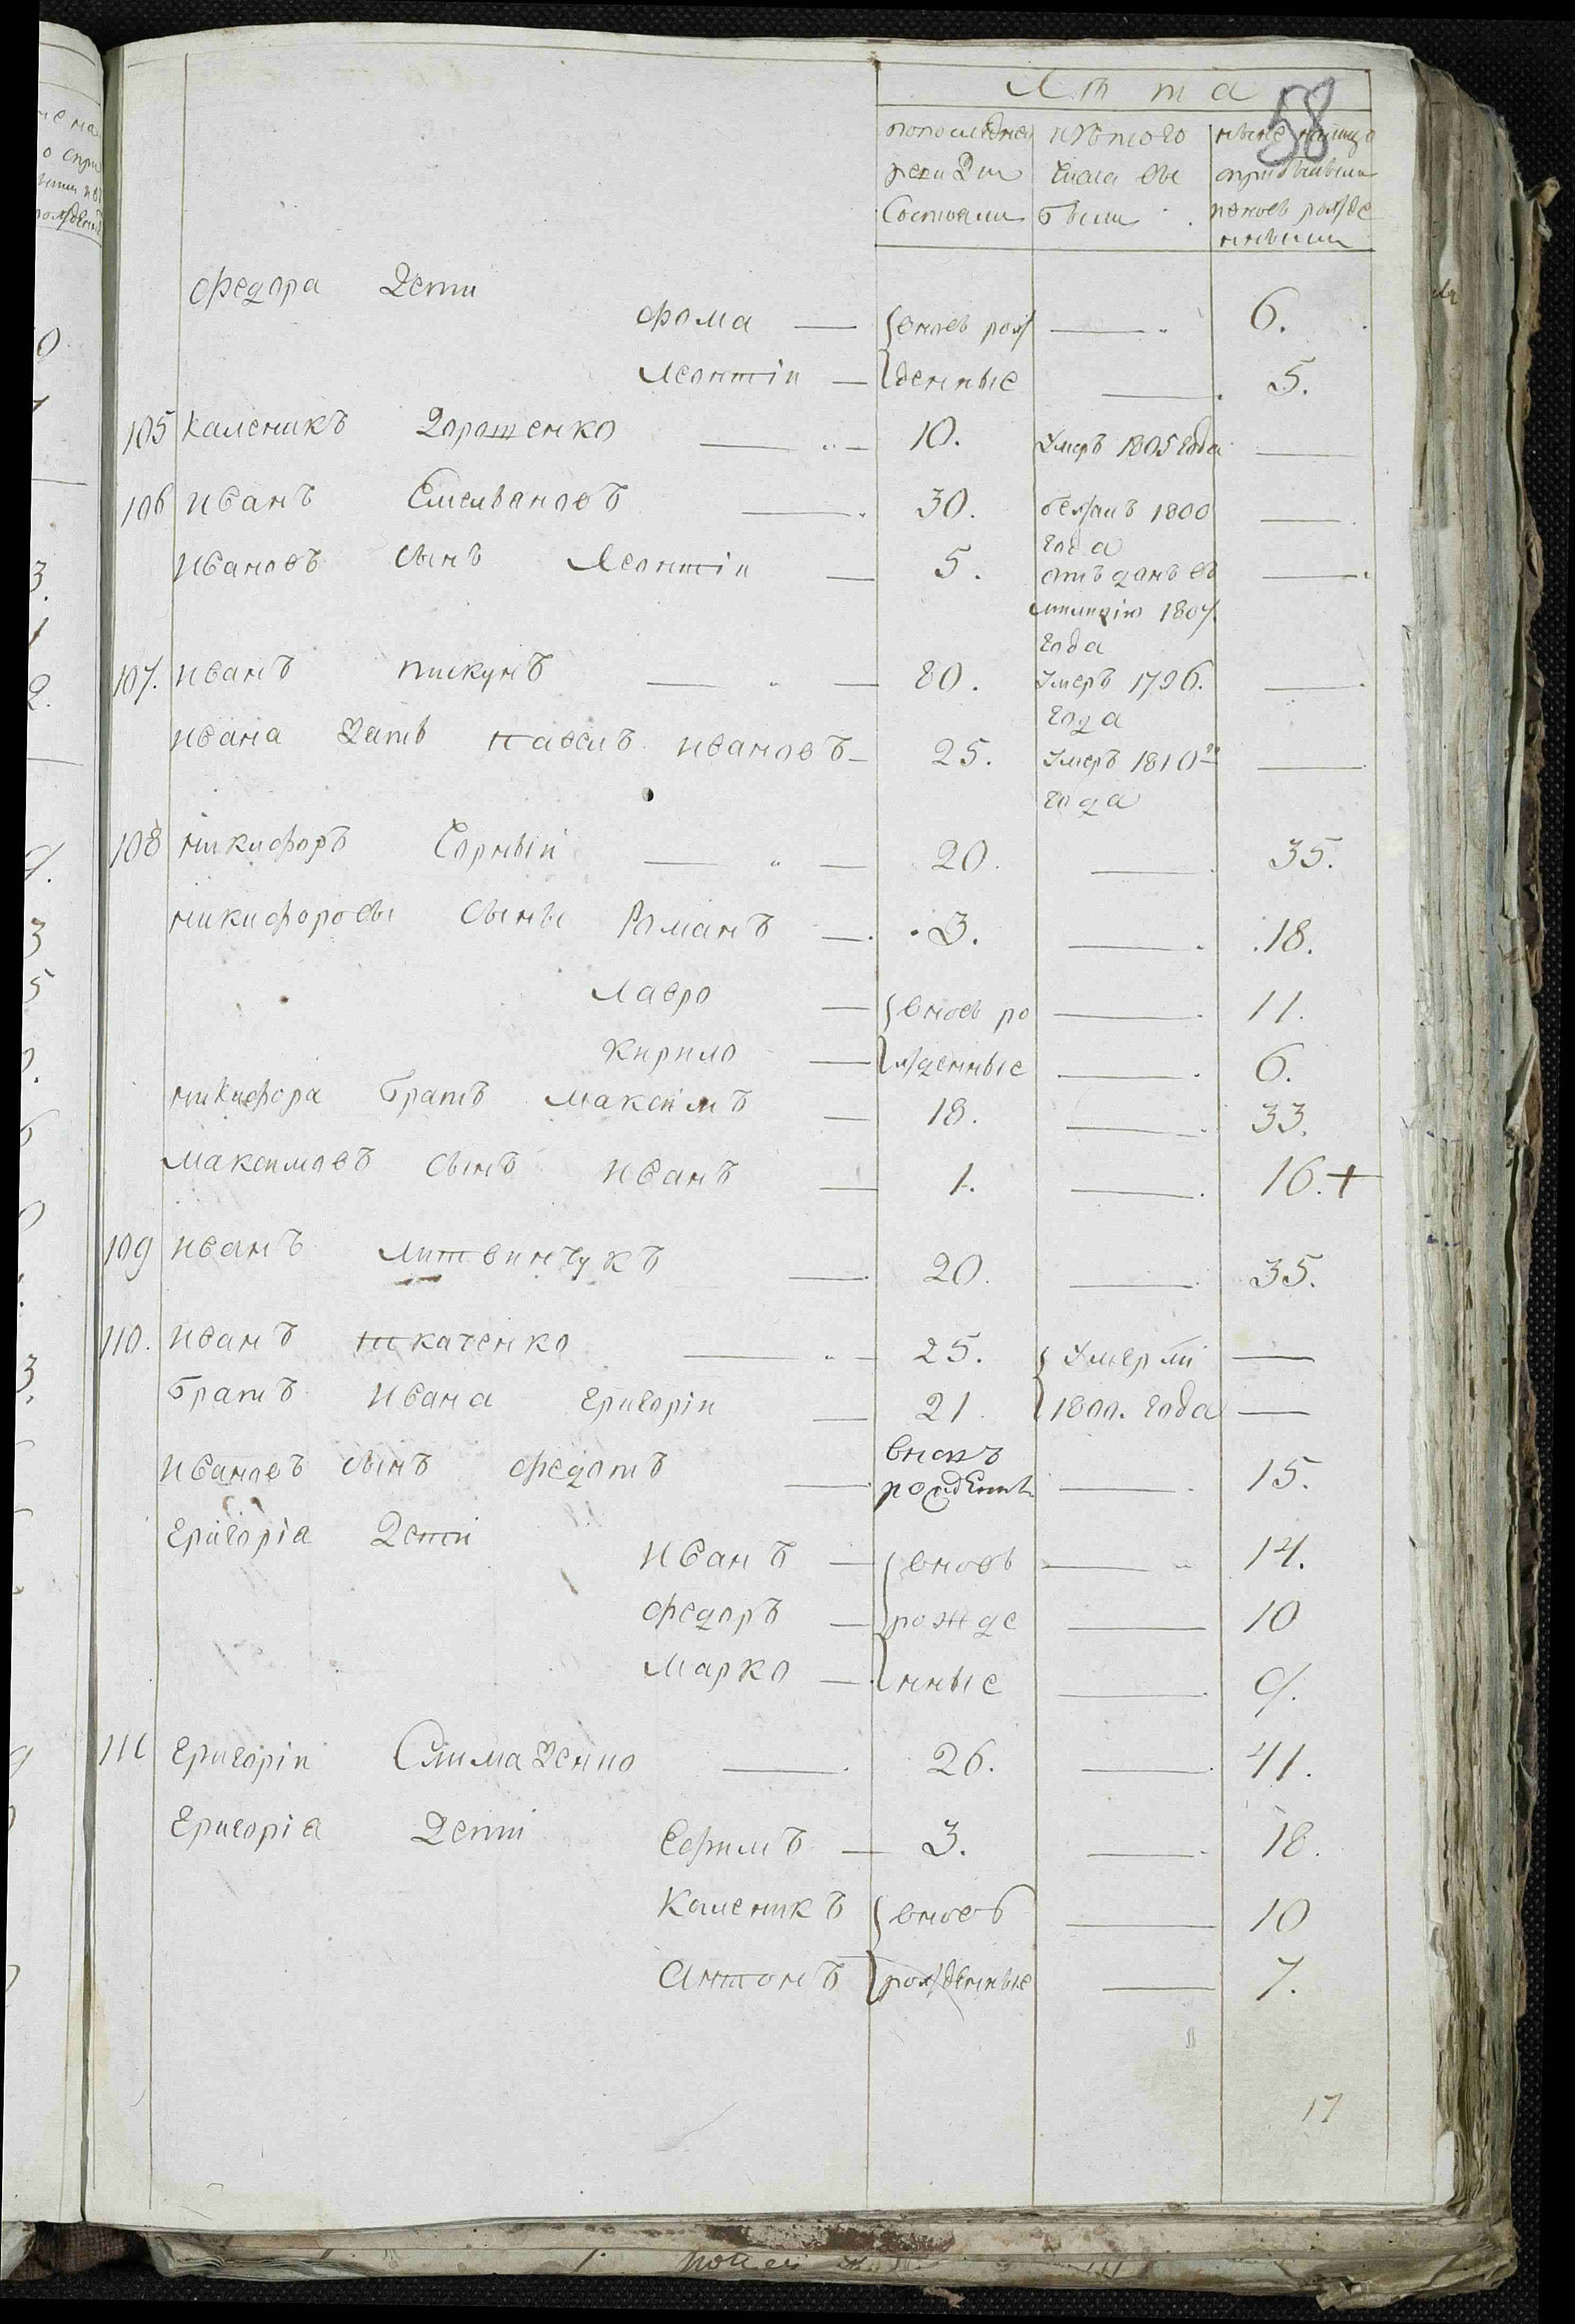 58
Лѣта
попоследней изътого ныне налицо
ревизии числа вы сприбывшими
Состояли были иновь рожде
нными
Федора дети
Фома — вновь рож — 6.
Леонтiи — денные — 5.
105 Каленикъ Дорошенко — 10. Умеръ 1805 года —
106 Иванъ Емельяновъ — 30. бежалъ 1800 —
года
Ивановъ сынъ Леонтiи — 5. отъданъ въ —
милицiю 1807.
года
107. Иванъ пискунъ — 80. Умеръ 1796. —
года
Ивана зять павелъ Ивановъ — 25. Умеръ 1810го —
года
108 Никифоръ Чорный — 20. — 35.
Никифоровы сыны Романъ — 3. — 18.
Лавро — вновь ро — 11.
Кирило — жденные — 6.
Никифора братъ Максимъ — 18. — 33.
Максимовъ сынъ Иванъ — 1. — 16.+
109 Иванъ литвинчукъ — 20. — 35.
110. Иванъ ткаченко — 25. Умерли —
братъ Ивана григорiи — 21 1800. года —
Ивановъ сынъ Федотъ — вновь
рожденъ — 15.
григорiа дети
Иванъ — вновь — 14.
Федоръ — рожде — 10
Марко — нные — 9.
111 григорiи — 26. — 41.
григорiа дети Ефимъ — 3. — 18.
Каленикъ вновь — 10
Антонъ рожденные — 7.
17